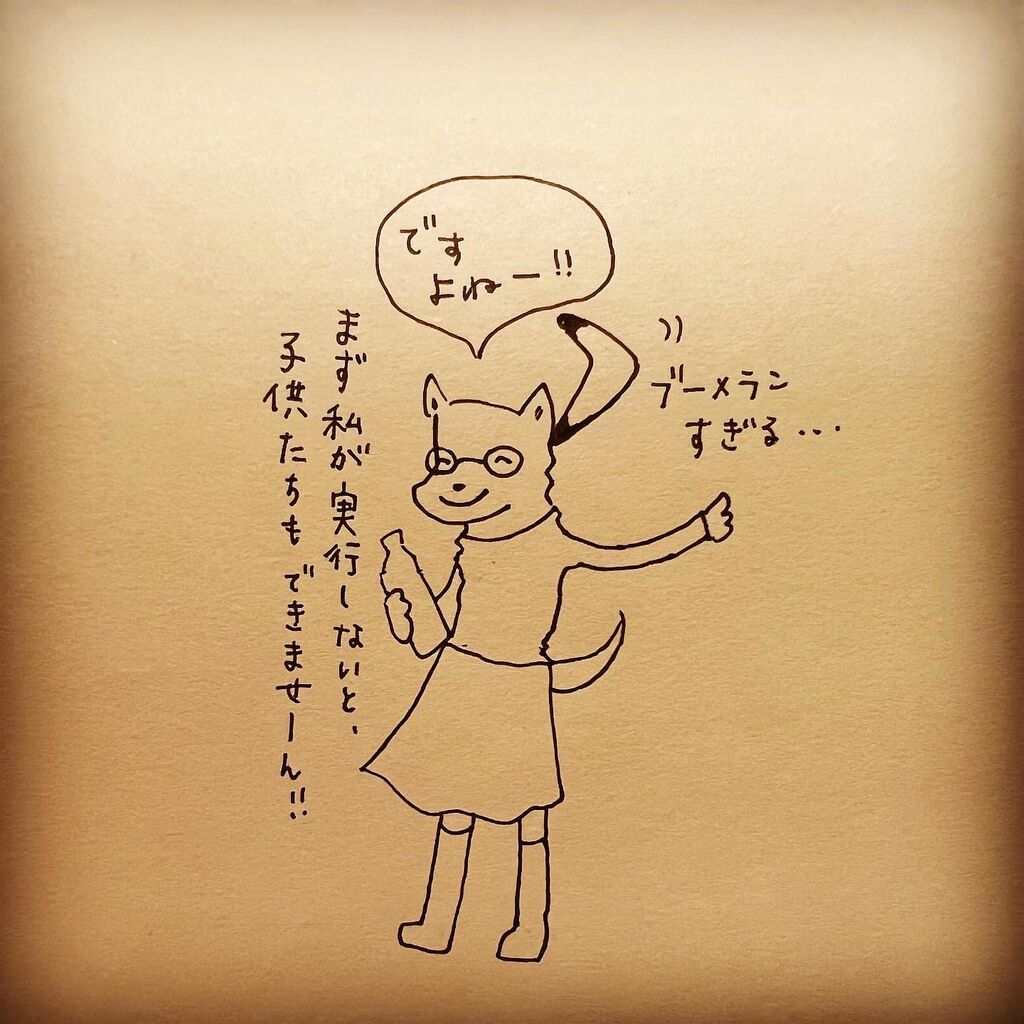 です
よねー!!
ブーメラン
すぎる...
まず私が実行しないと、
子供たちもできませーん!!